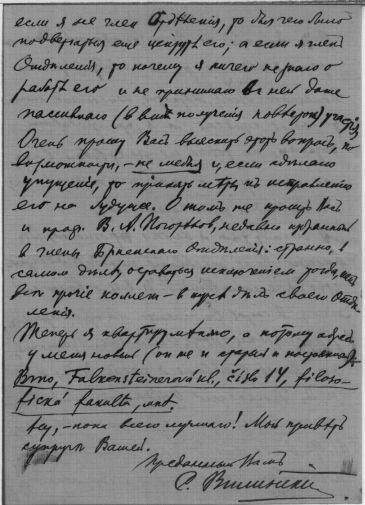 если я не член Отделения, то для чего было
подвергать еще цензуре его; а если я член
Отделения, то почему я ничего не знаю о
работе его и не принимаю в ней даже
пассивного (в виде получения повесток) участия
Очень прошу Вас выяснить этот вопрос, по
возможности, – не медля и, если сделано
упущение, то принять меры к исправлению
его на будущее. О том же просит Вас
и проф. В. А. Погорелов, недавно избранный
в члены Брненского Отделения: странно, в
самом деле, оставаться исключением тогда, когда
все прочие коллеги – в курсе дел своего Отде-
ления.
Теперь я квартиру меняю, а потому адрес
у меня новый (он же и старый и постоянный):
Brno, Falkensteinerová ul., číslo 14, filoso-
fická fakulta, mně.
Ну, – пока всего лучшего! Мой привет
супруге Вашей.
Преданный Вам
С. Вилинский